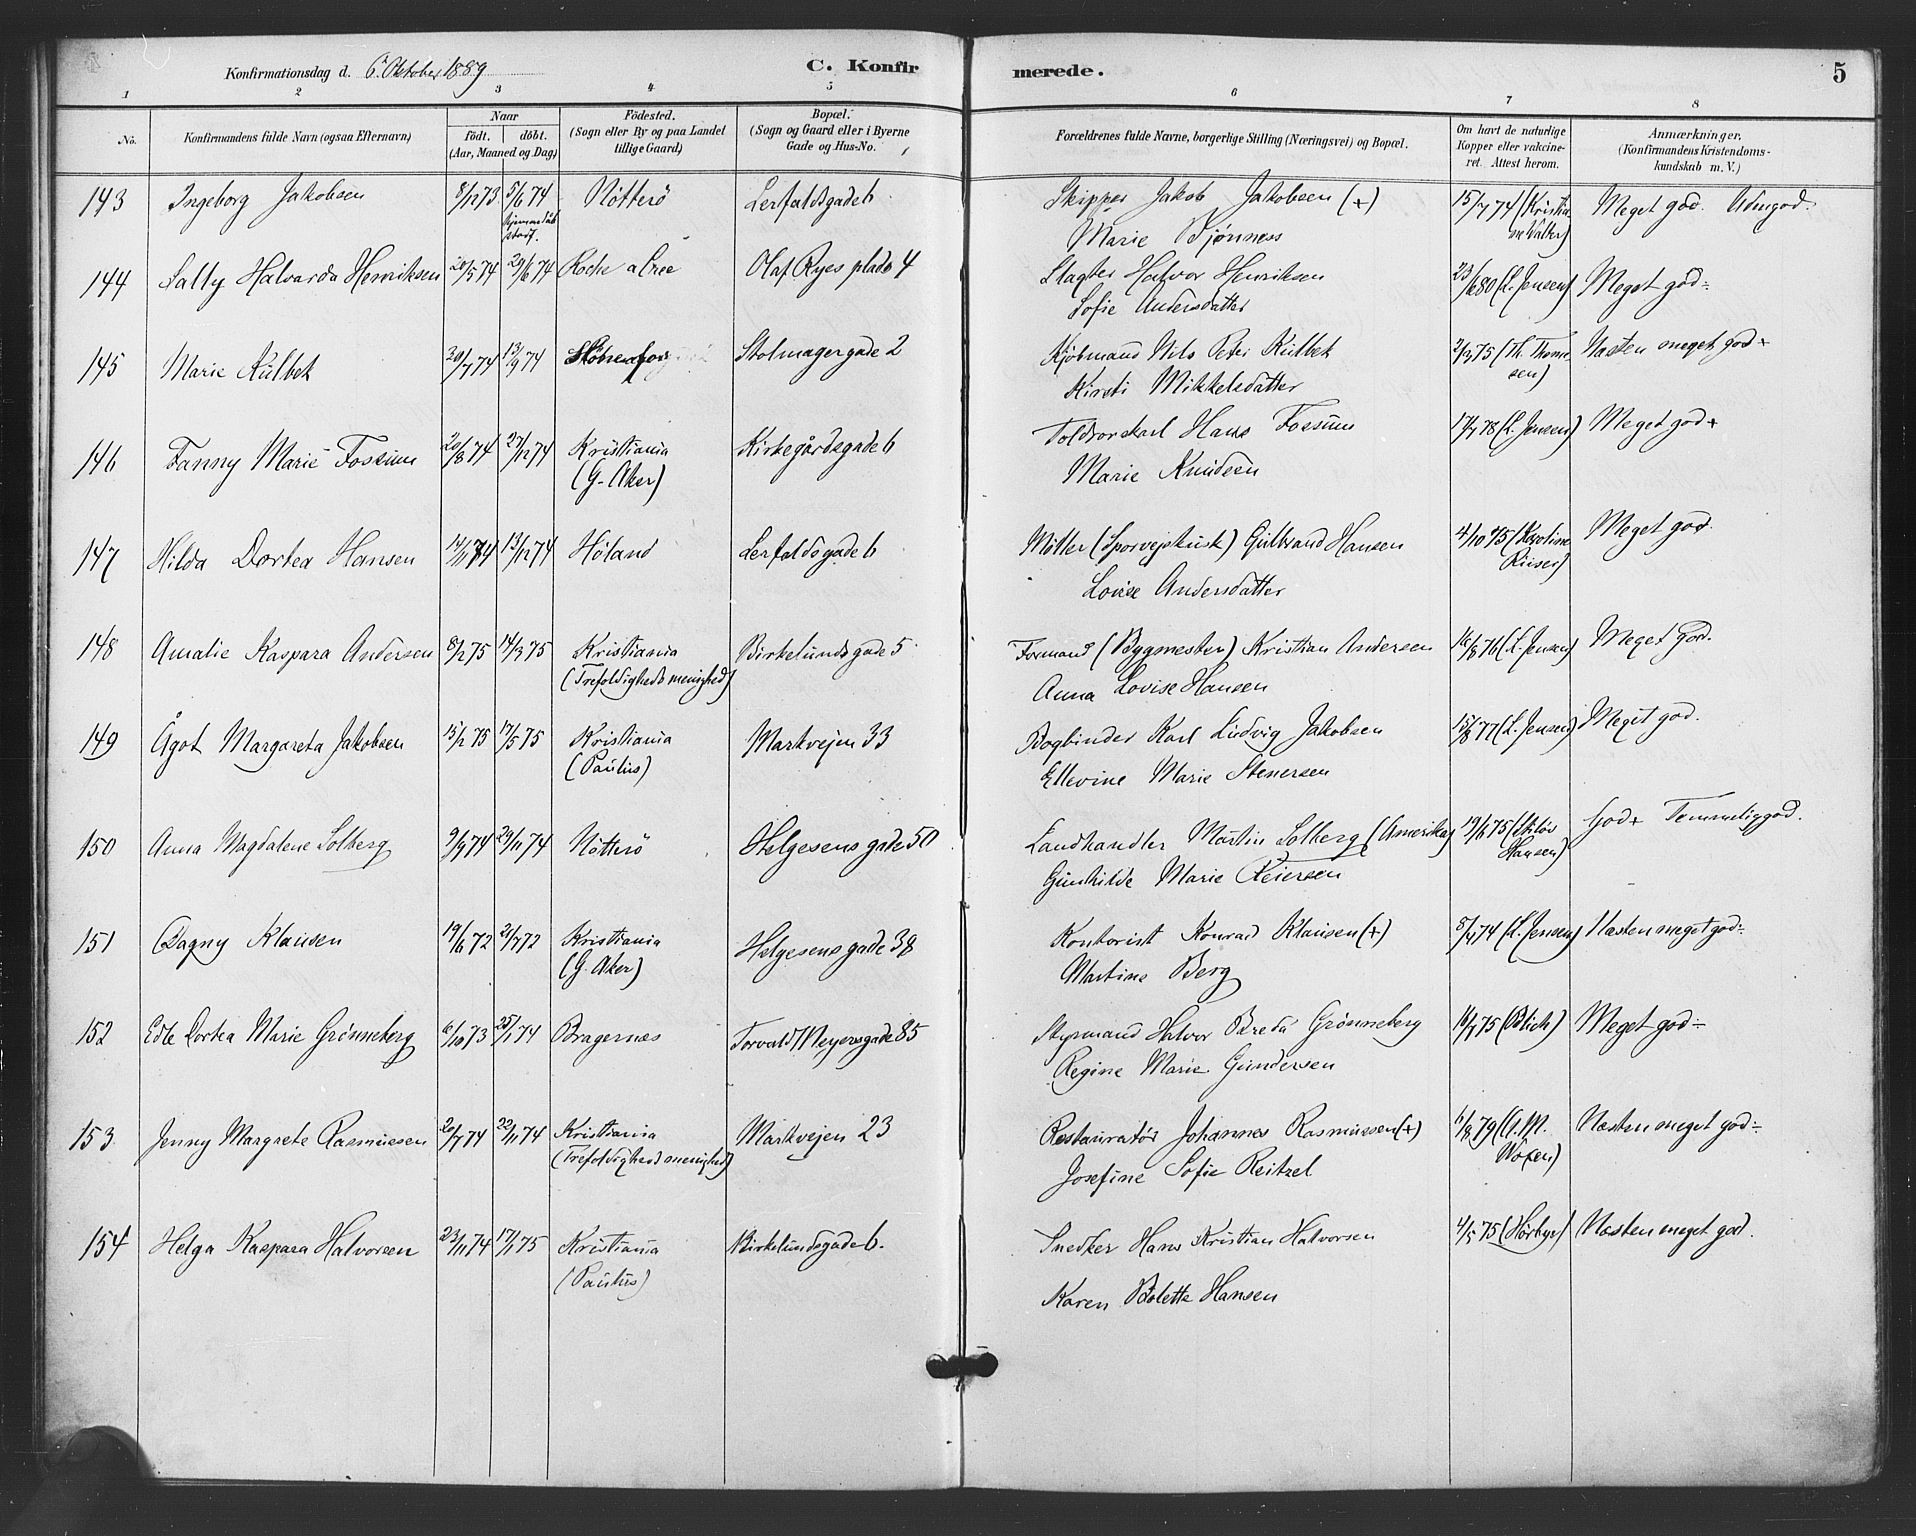 Konfirmationsdag d. 6. Oktober 1889 C. Konfirmerede. 5
1 2 3 4 5 6 7 8
No. Konfirmandens fulde Navn (ogsaa Efternavn) Naar født. døbt. (Aar, Maaned og Dag) Fødested. (Sogn eller By og paa Landet tillige Gaard) Bopæl. (Sogn og Gaard eller i Byerne Gade og Hus-No. Forældrenes fulde Navne, borgerlige Stilling (Næringsvei) og Bopæl. Om havt de naturlige Kopper eller vakcineret. Attest herom. Anmærkninger. (Konfirmandens Kristendomskundskab m. V.)
143 Ingeborg Jakobsen 8/12 73 5/6 74 Nötterö Lerfaldsgade 6 Skipper Jakob Jakobsen (+) 15/7 74 Meget god. Udmgod.
Marie Bjönness
144 Sally Halvarda Henriksen 20/5 74 29/6 74 Olaf Ryes plads 4 Slagter Halvor Henriksen 23/6 80 (L. Jensen) Meget god ÷
Sofie Andersdatter
145 Marie Kulbek 20/7 74 13/9 74 Stolmagergade 2 Kjöbmand Nils Peter Kulbek 2/3 75 (Th. Thomsen) Næsten meget god +
Kirsti Mikkelsdatter
146 Fanny Marie Fossum 20/8 74 27/12 74 Kristiania Kirkegårdsgade 6 Toldrorskarl Hans Fossum 17/7 78 (L. Jensen) Meget god +
(G. Aker) Marie Knudsen
147 Hilda Dortea Hansen 14/11 74 13/12 74 Höland Lerfaldsgade 6 Möller (Sporvejskusk) Gulbrand Hansen 4/10 75 (Karoline Meget god
Lovise Andersdatter
148 Amalie Kaspara Andersen 8/2 75 14/3 75 Kristiania Birkelundsgade 5 Formand (Bygmester) Kristian Andersen 16/8 76 (L. Jensen) Meget God.
(Trefoldigheds menighed) Anna Lovise Hansen
149 Ågot Margareta Jakobsen 15/2 75 17/5 75 Kristiania Markvejen 33 Bogbinder Karl Ludvig Jakobsen 15/8 77 (L. Jensen) Meget god.
(Paulus) Ellevine Marie Stenersen
150 Anna Magdalene Solberg 9/9 74 29/11 74 Nötterö Helgesens gade 50 Landhandler Martin Solberg (Amerika) 19/6 75 God + Temmelig god.
Gunhilde Marie Reiersen Hansen)
151 Dagny Klausen 19/6 72 21/7 72 Kristiania Helgesens gade 38 Kontorist Konrad Klausen (+) 8/4 74 (L. Jensen) Næsten meget god ÷
(G. Aker) Martine Berg
152 Edle Dortea Marie Grönneberg 6/10 73 25/1 74 Bragernæs Torvald Meyersgade 85 Styrmand Halvor Breda Grönneberg 16/7 75 (Blich) Meget god ÷
Regine Marie Gundersen
153 Jenny Margrete Rasmussen 20/7 74 22/11 74 Kristiania Markvejen 23 Restauratör Johannes Rasmussen (+) 6/8 79 Næsten meget god ÷
(Trefoldigheds menighed) Josefine Sofie Reitzel
154 Helga Kaspara Halvorsen 23/11 74 17/1 75 Kristiania Birkelundsgade 6. Snedker Hans Kristian Halvorsen 4/5 75 (Hörbye) Næsten meget god.
(Paulus) Karen Bolette Hansen